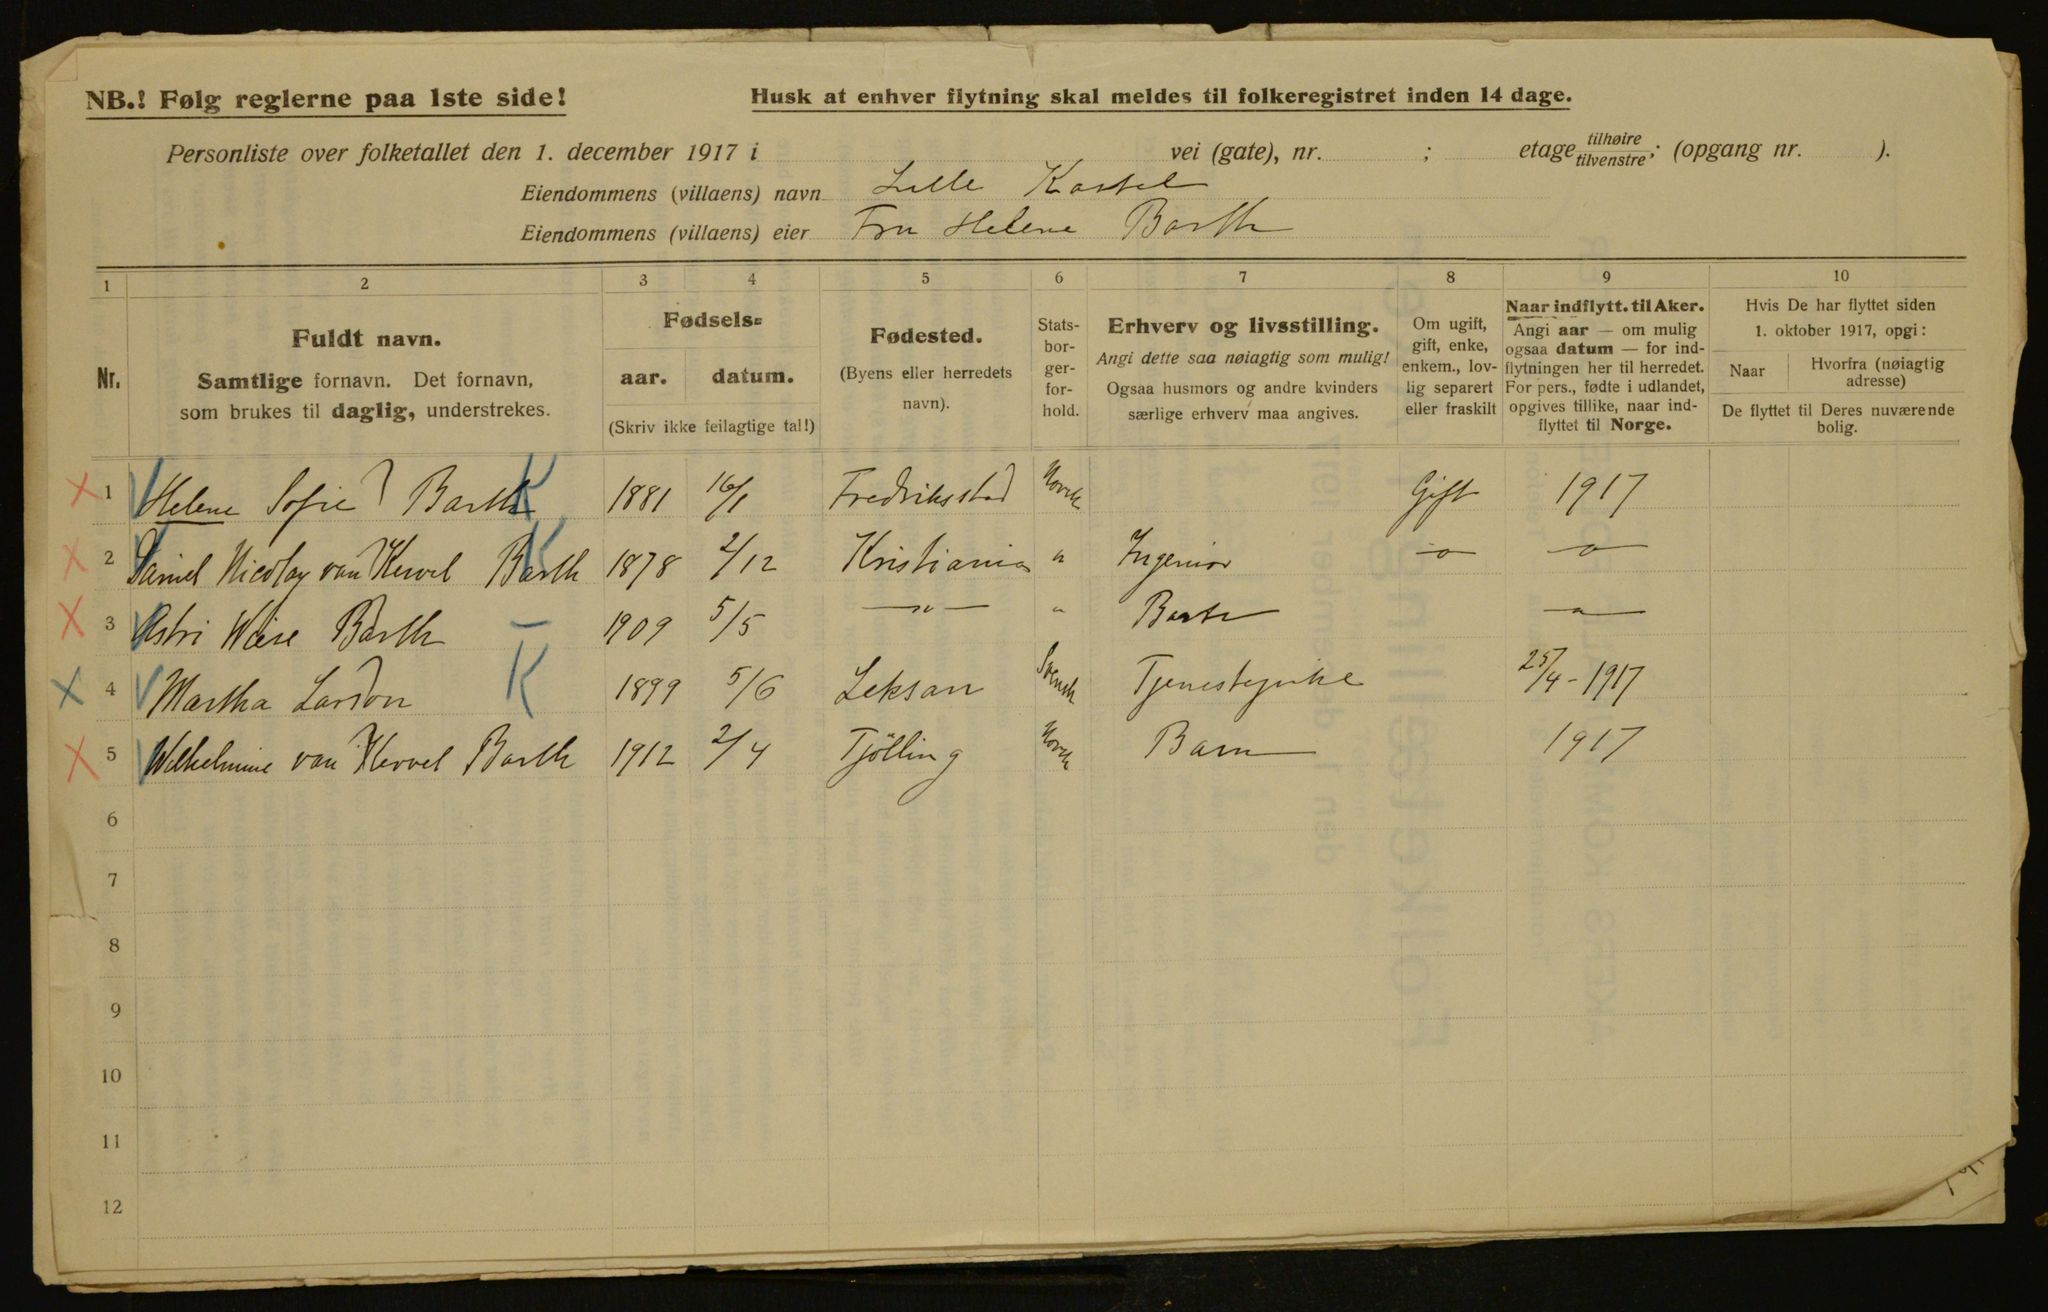 NB.! Følg reglerne paa 1ste side!
Husk at enhver flytning skal meldes til folkeregistret inden 14 dage.
Personliste over folketallet den 1. december 1917 i vei (gate), nr. ; etage tilhøire/tilvenstre; (opgang nr. ).
Eiendommens (villaens) navn Lille Kastel
Eiendommens (villaens) eier Fru Helene Barth
1 2 3 4 5 6 7 8 9 10
Nr.
Fuldt navn.
Samtlige fornavn. Det fornavn,
som brukes til daglig, understrekes.
Fødsels-
aar. datum.
(Skriv ikke feilagtige tal!)
Fødested.
(Byens eller herredets
navn).
Stats-
bor-
ger-
for-
hold.
Erhverv og livsstilling.
Angi dette saa nøiagtig som mulig!
Ogsaa husmors og andre kvinders
særlige erhverv maa angives.
Om ugift,
gift, enke,
enkem., lov-
lig separert
eller fraskilt
Naar indflytt. til Aker.
Angi aar — om mulig
ogsaa datum — for ind-
flytningen her til herredet.
For pers., fødte i udlandet,
opgives tillike, naar ind-
flyttet til Norge.
Hvis De har flyttet siden
1. oktober 1917, opgi:
Naar
Hvorfra (nøiagtig
adresse)
De flyttet til Deres nuværende
bolig.
1 Helene Sofie Barth K 1881 16/1 Fredriksstad Norsk Gift 1917
2 Daniel Nicolay van Kervel Barth K 1878 2/12 Kristiania " Ingeniør —"— —"—
3 Astri Wiese Barth — 1909 5/5 —"— " Barn —"—
4 Martha Larson K 1899 5/6 Leksan Svensk Tjenestepike 25/4 - 1917
5 Wilhelmine van Kervel Barth 1912 2/4 Tjölling Norsk Barn 1917
6
7
8
9
10
11
12